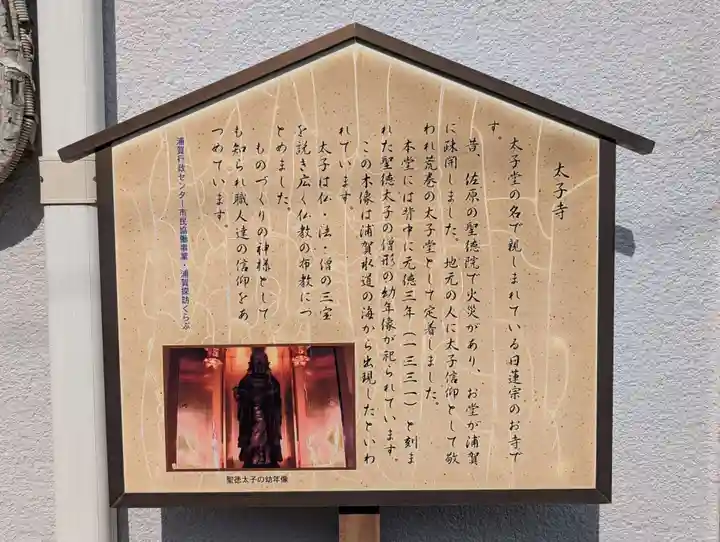 太子寺
太子堂の名で親しまれている日蓮宗のお寺で
す。
昔、佐原の聖徳院で火災があり、お堂が浦賀
に疎開しました。地元の人に太子信仰として敬
われ荒巻の太子堂として定着しました。
本堂には背中に元徳三年(一三三一)と刻ま
れた聖徳太子の僧形の幼年像が祀られています。
この木像は浦賀水道の海から出現したといわ
れています
太子は仏・法・僧の三宝
を説き広く仏教の布教につ
とめました。
ものづくりの神様として
も知られ職人達の信仰をあ
つめています。
浦賀行政センター市民協働事業・浦賀探訪くらぶ
聖徳太子の幼年像